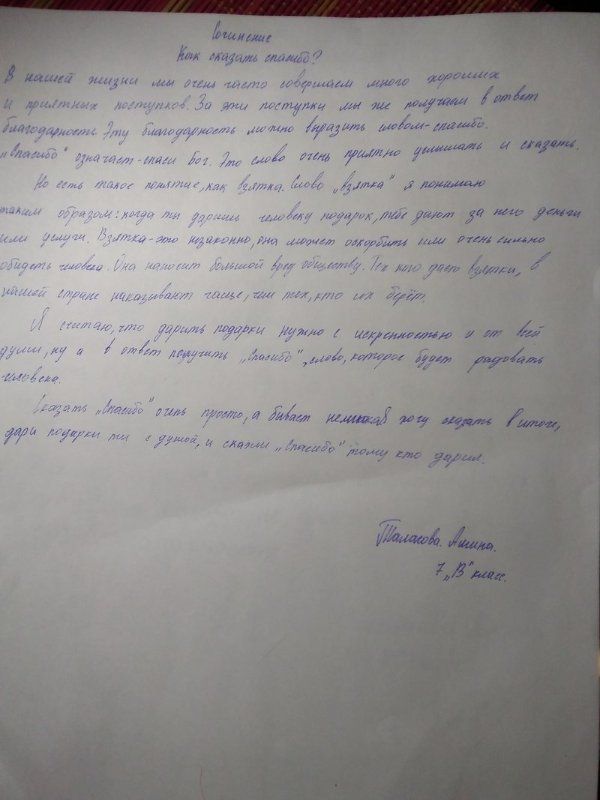 Сочинение
Как сказать спасибо?
В нашей жизни мы очень часто совершаем много хороших
и приятных поступков. За эти поступки мы же получаем в ответ
благодарность. Эту благодарность можно выразить словом-спасибо.
"Спасибо" означает-спаси бог. Это слово очень приятно услышать и сказать.
Но есть такое понятие, как взятка. Слово "взятка" я понимаю
таким образом: когда ты даришь человеку подарок, тебе дают за него деньги
или услуги. Взятка-это незаконно, она может оскорбить или очень сильно
обидеть человека. Она наносит большой вред обществу. Тех кто дает взятки, в
нашей стране наказывают чаще, чем тех, кто их берёт.
Я считаю, что дарить подарки нужно с искренностью и от всей
души, ну а в ответ получить "Спасибо", слово, которое будет радовать
человека.
Сказать "Спасибо" очень просто, а бывает хочу сказать в итоге,
дари подарки ты с душой, и скажи "Спасибо" тому кто дарил.
Амина.
7 "В" класс.